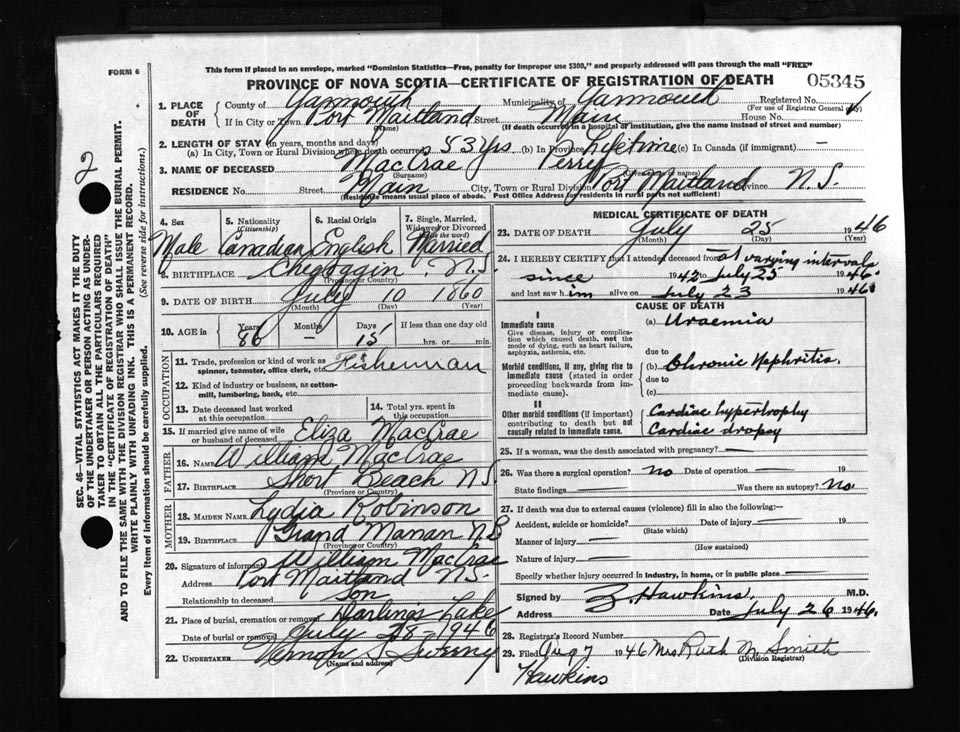 This form if placed in an envelope, marked "Dominion Statistics—Free, penalty for improper use $300," and properly addressed will pass through the mail "FREE"
FORM 6
PROVINCE OF NOVA SCOTIA—CERTIFICATE OF REGISTRATION OF DEATH 05345
2
SEC. 46—VITAL STATISTICS ACT MAKES IT THE DUTY
OF THE UNDERTAKER OR PERSON ACTING AS UNDER-
TAKER TO OBTAIN ALL THE PARTICULARS REQUIRED
IN THE "CERTIFICATE OF REGISTRATION OF DEATH"
AND TO FILE THE SAME WITH THE DIVISION REGISTRAR WHO SHALL ISSUE THE BURIAL PERMIT.
WRITE PLAINLY WITH UNFADING INK. THIS IS A PERMANENT RECORD.
Every item of information should be carefully supplied. (See reverse side for instructions.)
1. PLACE OF DEATH County of Yarmouth Municipality of Yarmouth Registered No.
(For use of Registrar General only)
If in City or Town Port Maitland Street Main House No.
(Name) (If death occurred in a hospital or institution, give the name instead of street and number)
2. LENGTH OF STAY (in years, months and days)
(a) In City, Town or Rural Division where death occurred 53 yrs. (b) In Province Lifetime (c) In Canada (if immigrant) —
3. NAME OF DECEASED MacCrae Perry
(Surname) (Given names)
RESIDENCE No. Street Main City, Town or Rural Division Port Maitland Province N.S.
(Residence means usual place of abode. Post Office Address for residents in rural parts not sufficient)
4. Sex Male
5. Nationality (Citizenship) Canadian
6. Racial Origin English
7. Single, Married, Widowed or Divorced (Write the word) Married
8. BIRTHPLACE Chegoggin, N.S.
(Province or Country)
9. DATE OF BIRTH July 10 1860
(Month) (Day) (Year)
10. AGE in Years 86 Months — Days 15 If less than one day old
hrs. or min.
11. Trade, profession or kind of work as spinner, teamster, office clerk, etc. Fisherman
12. Kind of industry or business, as cotton-mill, lumbering, bank, etc.
13. Date deceased last worked at this occupation
14. Total yrs. spent in this occupation
15. If married give name of wife or husband of deceased Eliza MacCrae
FATHER
16. NAME William MacCrae
17. BIRTHPLACE Short Beach N.S.
(Province or Country)
MOTHER
18. MAIDEN NAME Lydia Robinson
19. BIRTHPLACE Grand Manan N.B
(Province or Country)
20. Signature of informant William MacCrae
Address Port Maitland N.S.
Relationship to deceased Son
21. Place of burial, cremation or removal Darlings Lake
Date of burial or removal July 28 1946
22. UNDERTAKER Vernon S. Sweeny
(Name and address)
MEDICAL CERTIFICATE OF DEATH
23. DATE OF DEATH July 25 1946
(Month) (Day) (Year)
24. I HEREBY CERTIFY that I attended deceased from at varying intervals
since 1942 to July 25 1946.
and last saw him alive on July 23 1946.
CAUSE OF DEATH
I
Immediate cause (a) Uraemia
Give disease, injury or complication which caused death, not the mode of dying, such as heart failure, asphyxia, asthenia, etc.
due to
Morbid conditions, if any, giving rise to immediate cause (stated in order proceeding backwards from immediate cause) (b) Chronic Nephritis.
due to
(c)
II
Other morbid conditions (if important) contributing to death but not causally related to immediate cause. Cardiac hypertrophy
Cardiac dropsy
25. If a woman, was the death associated with pregnancy? —
26. Was there a surgical operation? No Date of operation — 19
State findings — Was there an autopsy? No
27. If death was due to external causes (violence) fill in also the following:—
Accident, suicide or homicide? — Date of injury — 19
(State which)
Manner of injury —
(How sustained)
Nature of injury —
Specify whether injury occurred in industry, in home, or in public place —
Signed by Z. Hawkins. M.D.
Address Date July 26 1946.
28. Registrar's Record Number
29. Filed Aug 7 1946 Mrs Ruth M. Smith
(Division Registrar)
Hawkins